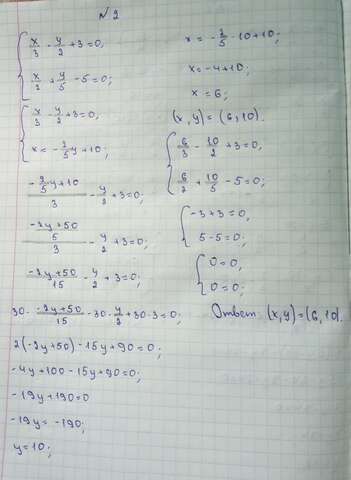 №2
{ x/3 - y/2 + 3 = 0;
x/2 + y/5 - 5 = 0;
{ x/3 - y/2 + 3 = 0;
x = -2/5 y + 10;
(-2/5 y + 10)/3 - y/2 + 3 = 0;
((-2y + 50)/5)/3 - y/2 + 3 = 0;
(-2y + 50)/15 - y/2 + 3 = 0;
30 · (-2y + 50)/15 - 30 · y/2 + 30 · 3 = 0;
2(-2y + 50) - 15y + 90 = 0;
-4y + 100 - 15y + 90 = 0;
-19y + 190 = 0
-19y = -190;
y = 10;
x = -2/5 · 10 + 10;
x = -4 + 10;
x = 6;
(x, y) = (6, 10).
{ 6/3 - 10/2 + 3 = 0;
6/2 + 10/5 - 5 = 0;
{ -3 + 3 = 0;
5 - 5 = 0;
{ 0 = 0;
0 = 0;
Ответ. (x, y) = (6, 10).